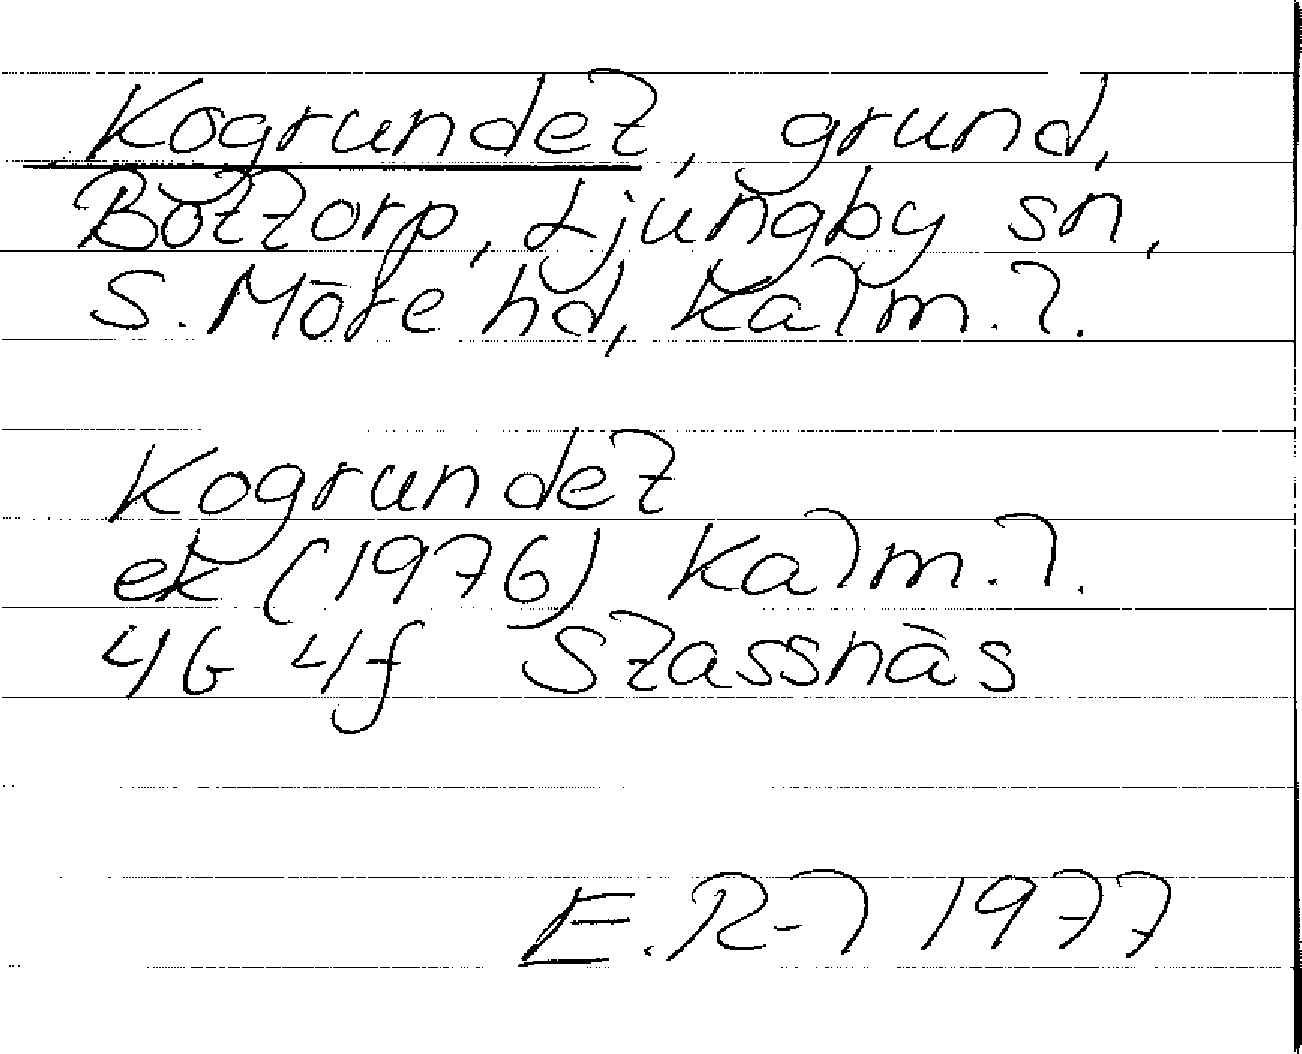 Kogrundet, grund,
Bottorp, Ljungby sn,
S. Möre hd, Kalm. l.
Kogrundet
ek (1976) Kalm. l.
4G 4f Stassnäs
E. R-l 1977